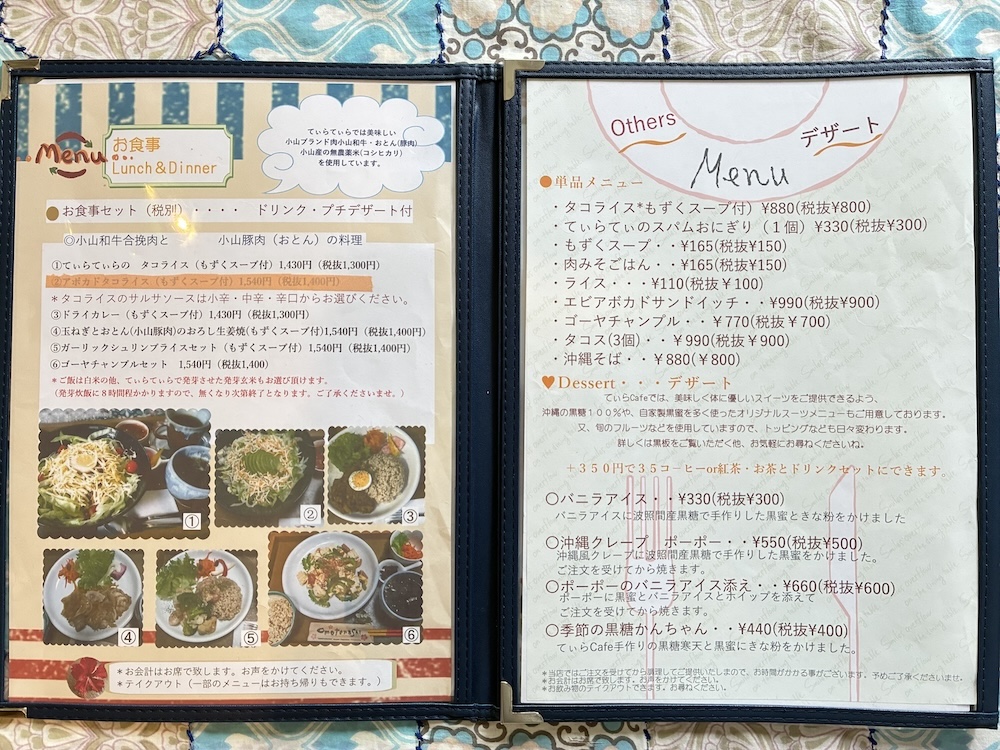 Menu
お食事
Lunch&Dinner
てぃらてぃらでは美味しい
小山ブランド肉小山和牛・おとん(豚肉)
小山産の無農薬米(コシヒカリ)
を使用しています。
お食事セット（税別）・・・・　ドリンク・プチデザート付
◎小山和牛合挽肉と　　　小山豚肉（おとん）の料理
①てぃらてぃらの　タコライス（もずくスープ付）1,430円（税抜1,300円）
②アボカドタコライス（もずくスープ付）1,540円（税抜1,400円）
＊タコライスのサルサソースは小辛・中辛・辛口からお選びください。
③ドライカレー（もずくスープ付）1,430円（税抜1,300円）
④玉ねぎとおとん(小山豚肉)のおろし生姜焼(もずくスープ付)1,540円（税抜1,400円）
⑤ガーリックシュリンプライスセット（もずくスープ付）1,540円（税抜1,400円）
⑥ゴーヤチャンプルセット　1,540円（税抜1,400）
＊ご飯は白米の他、てぃらてぃらで発芽させた発芽玄米もお選び頂けます。
（発芽炊飯に８時間程かかりますので、無くなり次第終了となります。ご了承くださいませ。）
①
②
③
④
⑤
⑥
＊お会計はお席で致します。お声をかけてください。
＊テイクアウト（一部のメニューはお持ち帰りもできます。）
Others
デザート
Menu
●単品メニュー
・タコライス*もずくスープ付）¥880(税抜¥800)
・てぃらてぃのスパムおにぎり（１個）¥330(税抜¥300)
・もずくスープ・・¥165(税抜¥150)
・肉みそごはん・・¥165(税抜¥150)
・ライス・・・¥110(税抜￥100)
・エビアボカドサンドイッチ・・¥990(税抜¥900)
・ゴーヤチャンプル・・￥770(税抜￥700)
・タコス(3個)・・￥990(税抜￥900)
・沖縄そば・・￥880(￥800)
♥Dessert・・・デザート
てぃらCafeでは、美味しく体に優しいスイーツをご提供できるよう、
沖縄の黒糖１００％や、自家製黒蜜を多く使ったオリジナルスーツメニューもご用意しております。
又、旬のフルーツなどを使用していますので、トッピングなども日々変わります。
詳しくは黒板をご覧いただく他、お気軽にお尋ねくださいね。
＋３５０円で３５コーヒーor紅茶・お茶とドリンクセットにできます。
○バニラアイス・・¥330(税抜¥300)
バニラアイスに波照間産黒糖で手作りした黒蜜ときな粉をかけました
○沖縄クレープ　ポーポー・・¥550(税抜¥500)
沖縄風クレープに波照間産黒糖で手作りした黒蜜をかけました。
ご注文を受けてから焼きます。
○ポーポーのバニラアイス添え・・¥660(税抜¥600)
ポーポーに黒蜜とバニラアイスとホイップを添えて
ご注文を受けてから焼きます。
○季節の黒糖かんちゃん・・¥440(税抜¥400)
てぃらCafe手作りの黒糖寒天と黒蜜にきな粉をかけました。
＊当店ではご注文を受けてから調理してご提供いたしますので、お時間がかかる事がございます。予めご了承くださいませ。
＊お会計はお席で致します。お声をかけてください。
＊お飲み物のテイクアウトできます。お尋ねください。